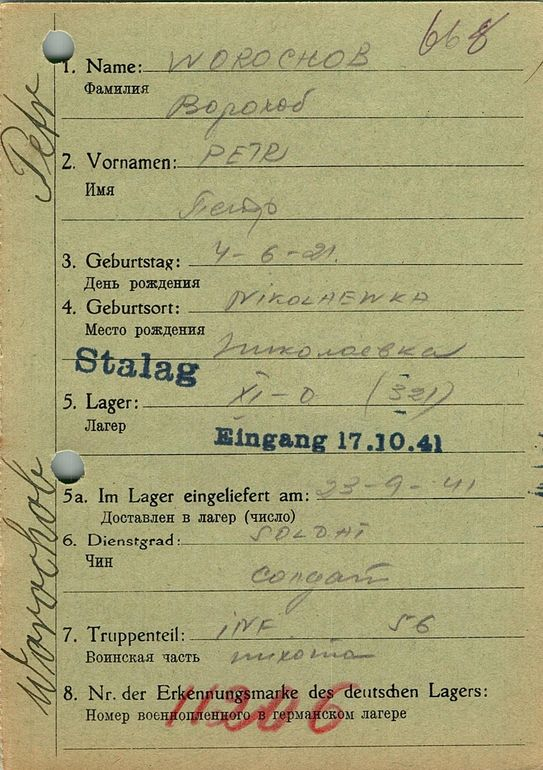 668
1. Name: WOROCHOB
Фамилия
Ворохоб
2. Vornamen: PETR
Имя
Петр
3. Geburtstag: 4-6-21.
День рождения
4. Geburtsort: NIKOLAEWKA
Место рождения
Николаевка
Stalag
5. Lager: XI-D (321)
Лагер
Eingang 17.10.41
5a. Im Lager eingeliefert am: 23-9-41
Доставлен в лагер (число)
6. Dienstgrad: SOLDAT
Чин
Солдат
7. Truppenteil: INF. 56
Воинская часть пихота
8. Nr. der Erkennungsmarke des deutschen Lagers:
Номер военнопленного в германском лагере
11206
Worochob Petr